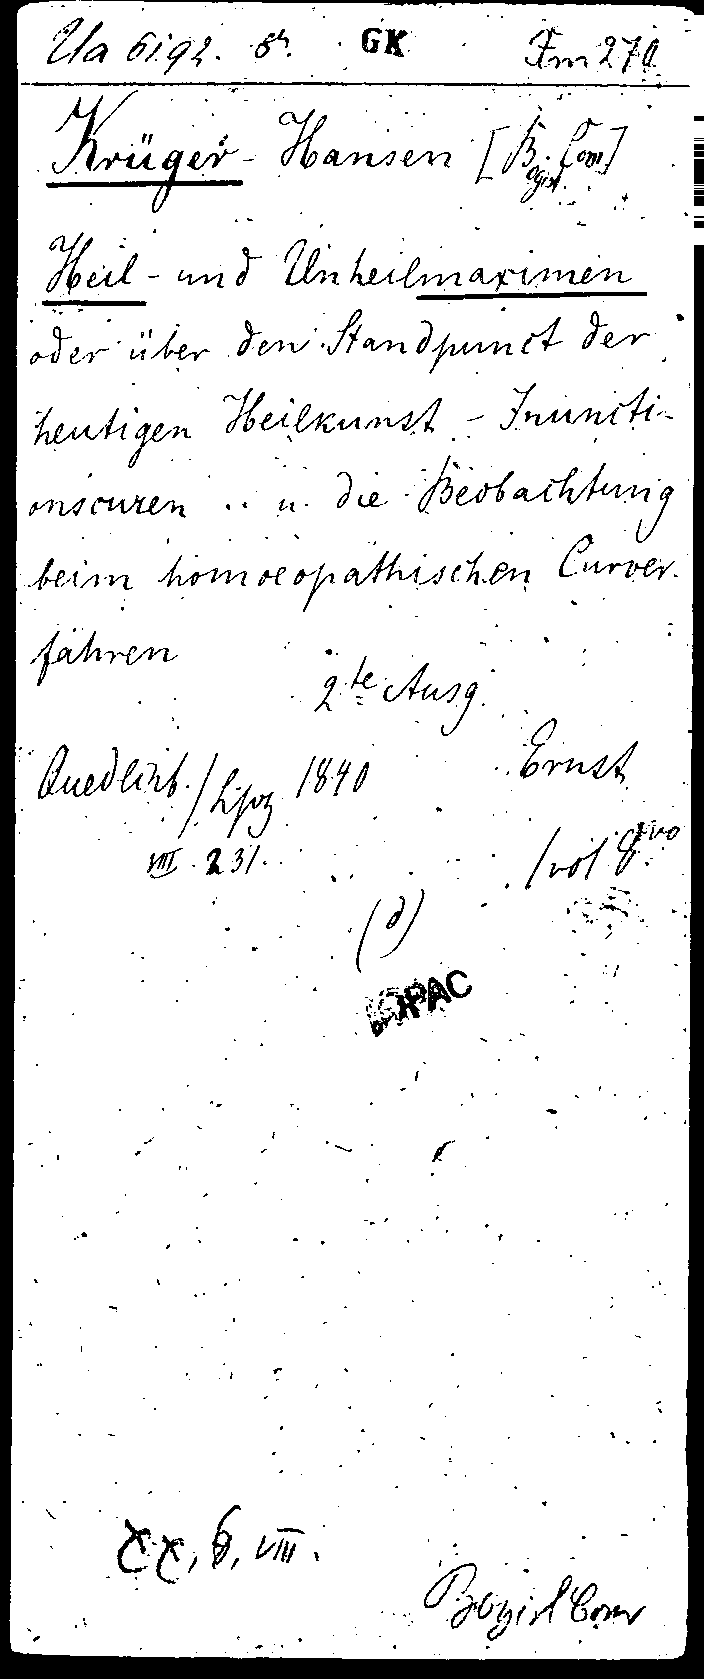 Ua 6192. 8°. GK Xm 270
Krüger-Hansen [B. Con]
ogisl.
Heil- und Unheilmaximen
oder über den Standpunct der
heutigen Heilkunst - Inuncti-
onscuren .. u. die Beobachtung
beim homoeopathischen Curver-
fahren
2te Ausg.
Quedlinb./Lpzg 1840 Ernst
VIII. 231. 1 vol 8vo
(d)
OPAC
XX, 6, VIII.
Bogisl Conr